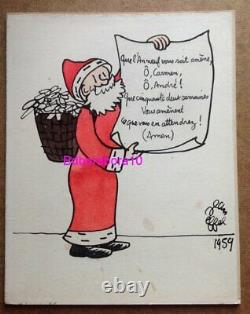 Que l'An neuf vous soit amène,
Ô, Carmen,
Ô, André !
Que cinquante deux semaines
Vous amènent
Ce que vous en attendrez !
(Amen)
Jean Effel
1959